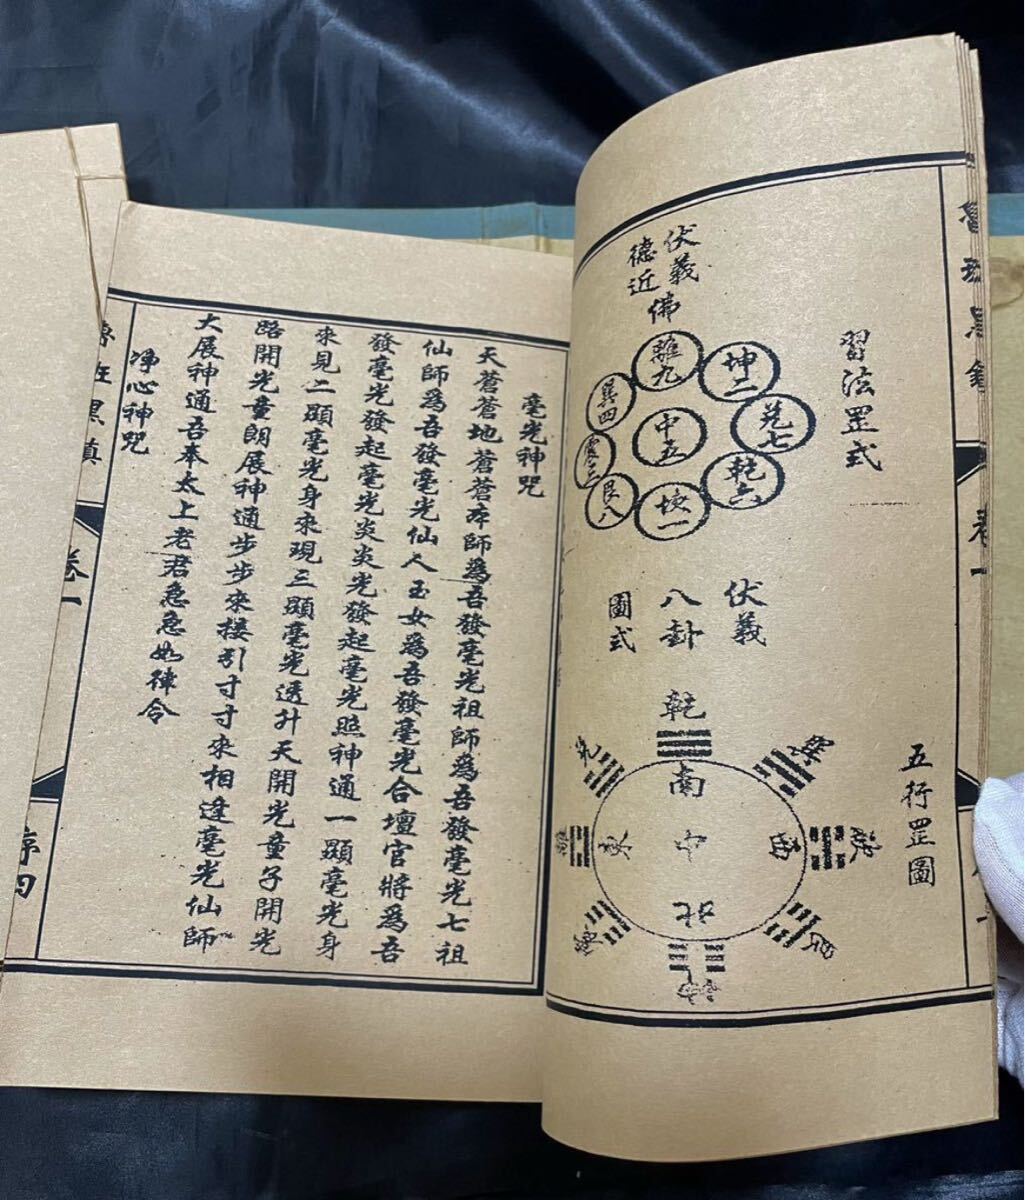 習法罡式
伏羲
德近佛
離九
坤二
巽四
中五
兌七
震三
艮八
坎一
乾六
伏羲
八卦
圖式
五行罡圖
乾
南
兌
巽
離
東
中
西
坎
北
震
艮
坤
卷一
毫光神咒
天蒼蒼地蒼蒼本師為吾發毫光祖師為吾發毫光七祖
仙師為吾發毫光仙人玉女為吾發毫光合壇官將為吾
發毫光發起毫光炎炎光發起毫光照神通一顯毫光身
來見二顯毫光身來現三顯毫光透升天開光童子開光
路開光童朗展神通步步來接引寸寸來相逢毫光仙師
大展神通吾奉太上老君急急如律令
凈心神咒
魯班黑鎮
卷一
序四